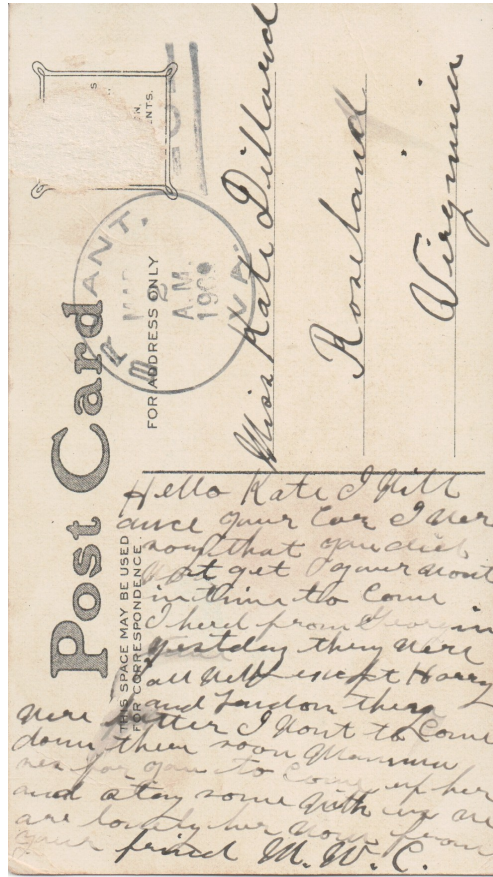 Post Card
THIS SPACE MAY BE USED
FOR CORRESPONDENCE
FOR ADDRESS ONLY
BRYANT,
2
A.M.
190
VA.
Miss Kate Dillard
Roseland
Virginia
Hello Kate I Will
ance your Car I Wer
that you did
not get your
in time to Come
I herd from in
yestday they Were
all Well except Harry
and Landon they
Were better I Wont to Come
down there soon Mamma
for you to Come up her
and stay some With us We
are lonely her Now from
your frind M. W. C.